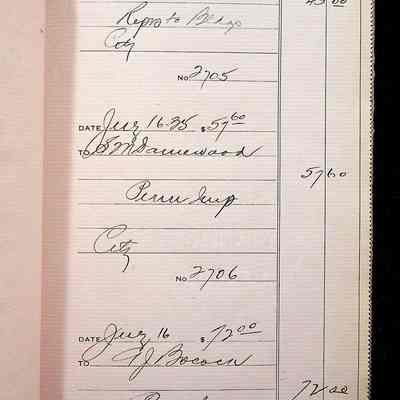 43.00
Reprs to Bldgs
City
No 2705
DATE July 16-35 $57.60
TO
57 60
Perm Imp
City
No 2706
DATE July 16 $72.00
TO A J Bocock
72 00